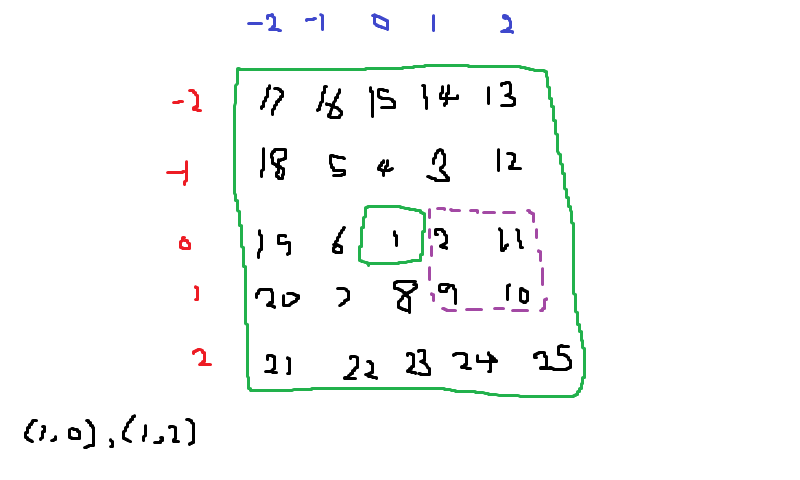 -2 -1 0 1 2
-2 17 16 15 14 13
-1 18 5 4 3 12
0 19 6 1 2 11
1 20 7 8 9 10
2 21 22 23 24 25
(1,0),(1,2)